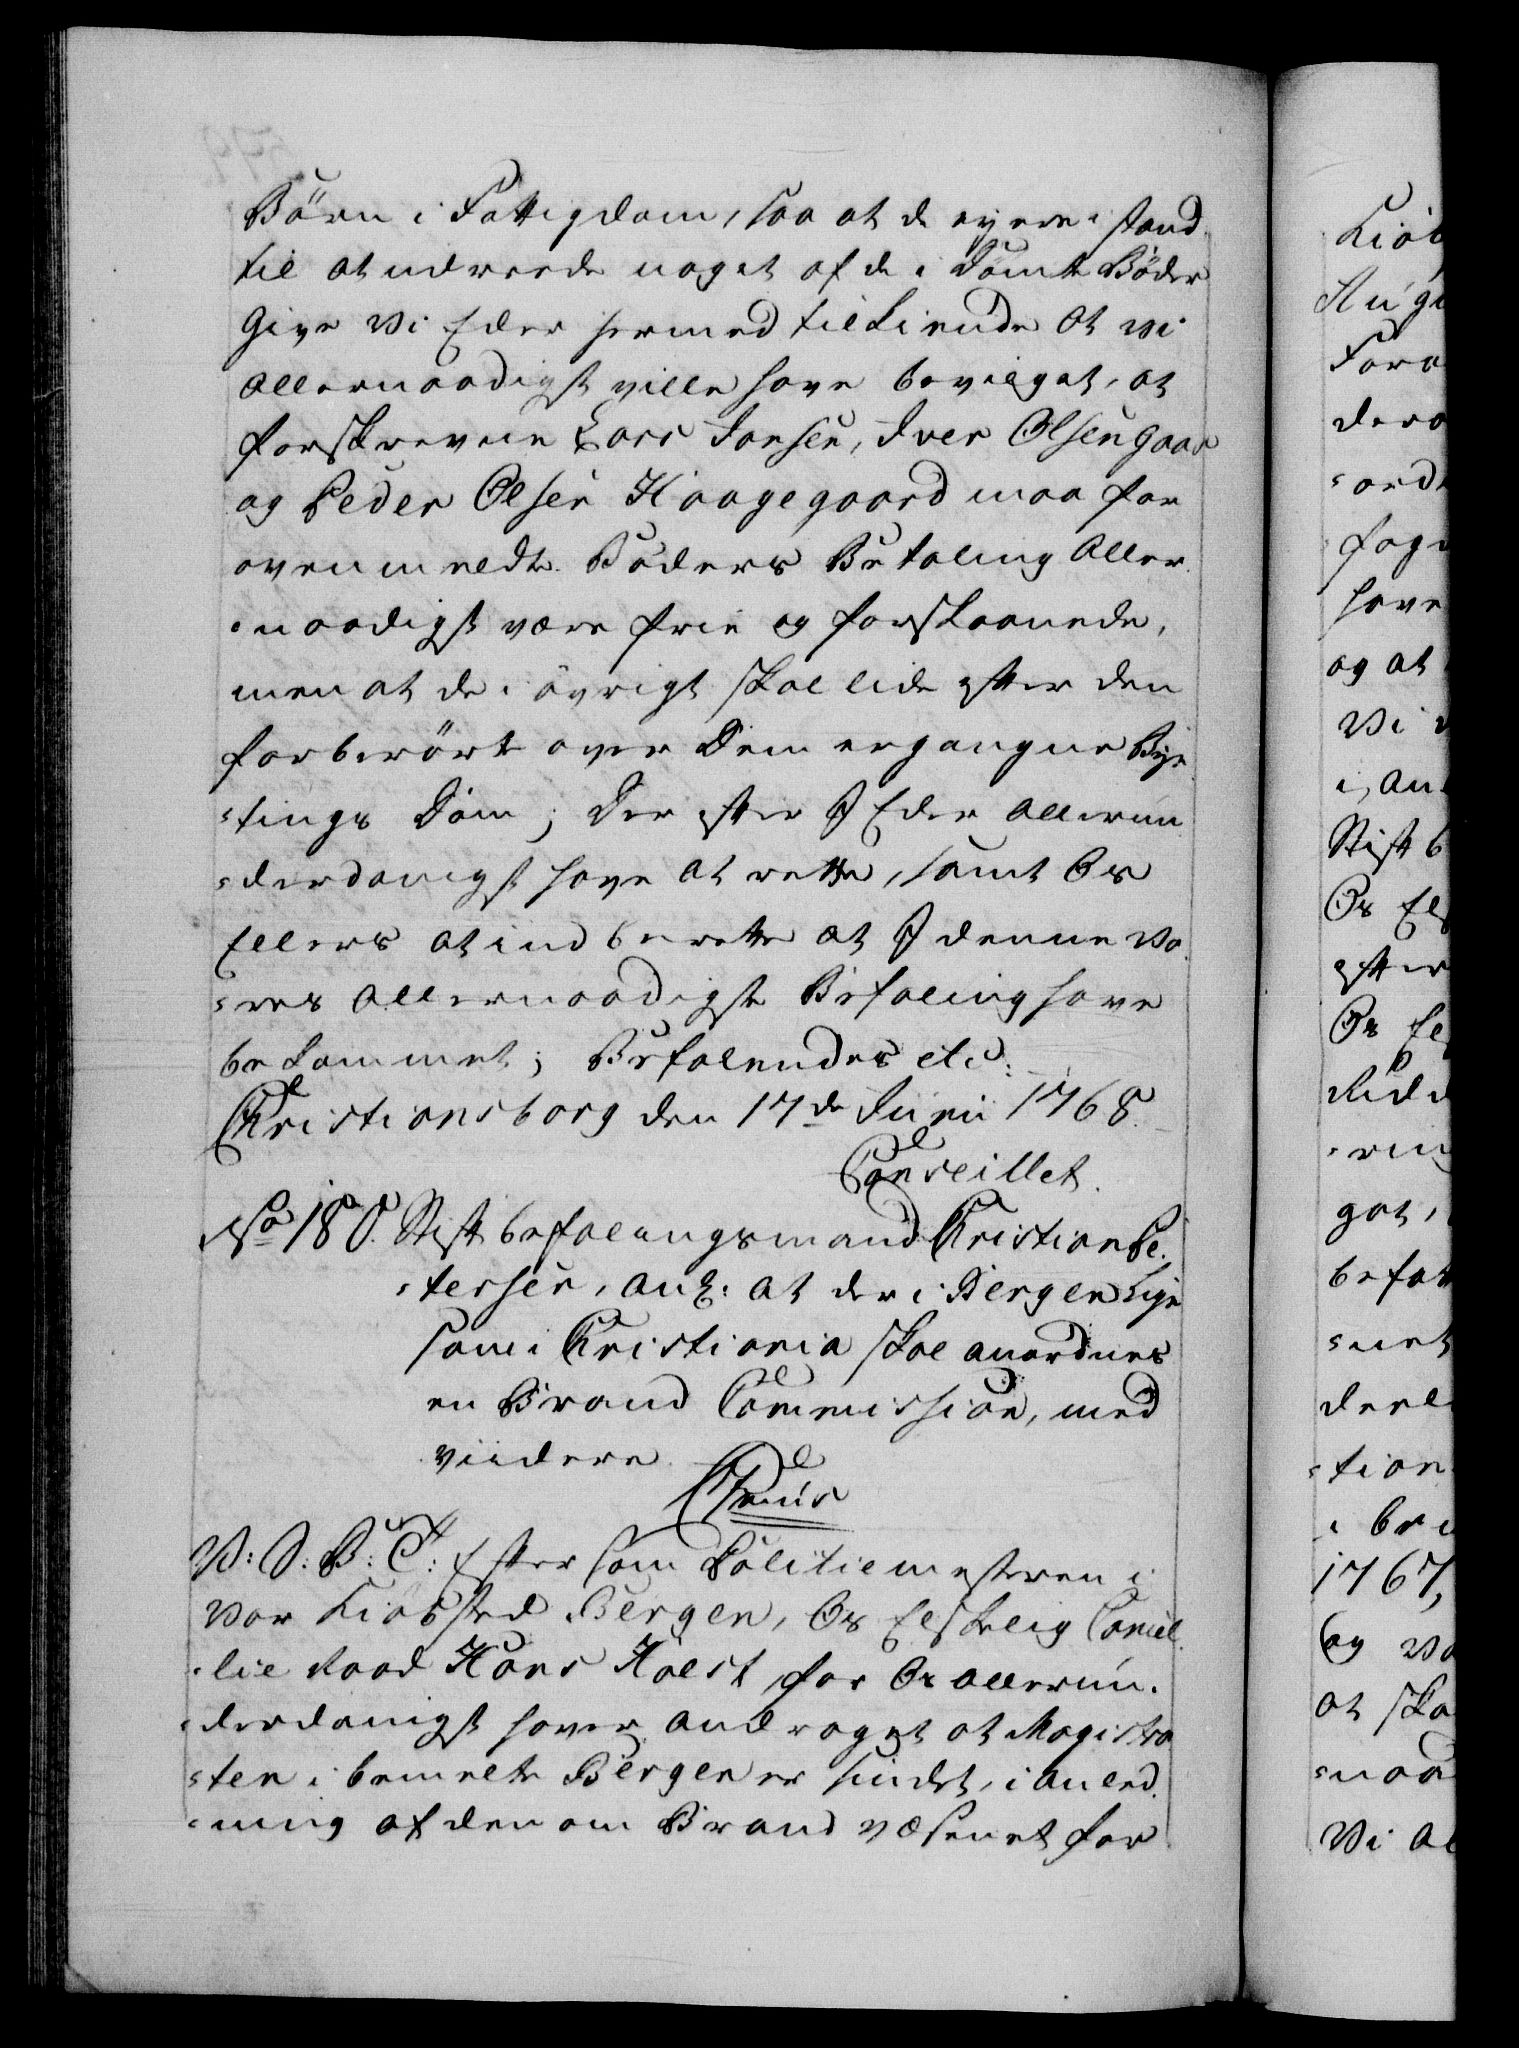 Börn i Fattigdom, saa at de ey ere i stand
til at udreede noget af de i Dömte Böder
Give Vi Eder hermed tilkiende at vi
allernaadigst ville have bevilget, at
forskrevene Lars Jonsen, Iver Olsen gaar
og Peder Olsen Haagegaard maa for
ovenmeldte Böders Betaling Aller
-naadigst være frie og forskaanede,
men at de i övrigt skal lide efter den
forberörte over Dem ergangne Bye
-tings Dom; Der efter I Eder allerun
-derdanigst have at rette, samt Os
Ellers at indberette at I denne Vo
-res allernaadigste Befaling have
bekommet; Befalendes etc:
Christiansborg den 17de Junii 1768.
Conseillet.
No 180. Stiftbefalingsmand Christian Pe
-tersen, ang: at der i Bergen Lige
som i Christiania skal anordnes
en Brand Commission, med
viidere
Chr: 7mus
V: G: B: T: Eftersom Politiemesteren i
Vor Kiöbsted Bergen, Os Elskelig Cancel
-lie Raad Hans Holst for Os allerun-
-derdanigst haver andraget at Magistra
-ten i bemelte Bergen er sindet, i anled
-ning af den om Brand væsenet for
Kiöb
Aug
Fora
dera
-ordt
fogn
have
og at
Vi
i An
Stiftb
Os Els
efter
Os El
Ridd
-ring
got,
befat
-net
derl
-tion
i br
1767,
og Vo
at ska
-naa
Vi al